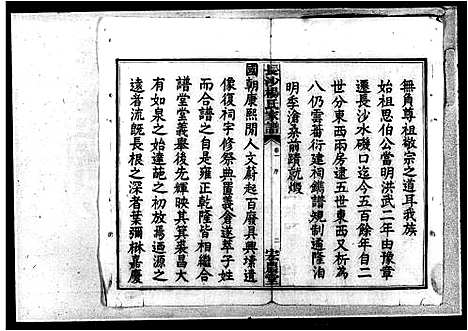 無角尊祖敬宗之道耳我族
始祖思伯公當明洪武二年由豫章
遷長沙水磯口迄今五百餘年自二
世分東西兩房逮五世東西又析為
八仍雲蕃衍建祠鐫譜規制遹隆泊
明季滄桑前蹟就燬
長沙楊氏家譜
卷一 序
二
國朝康熙間人文蔚起百廢具興墳遺
像復祠宇修祭典置義倉遂萃子姓
而合譜之自是雍正乾隆皆早有成
譜堂堂義舉後先輝映其箕裘昌大
有如泉之始達蓰之初放得過源之
遠者流旣長根之深者葉彌楙嘉慶